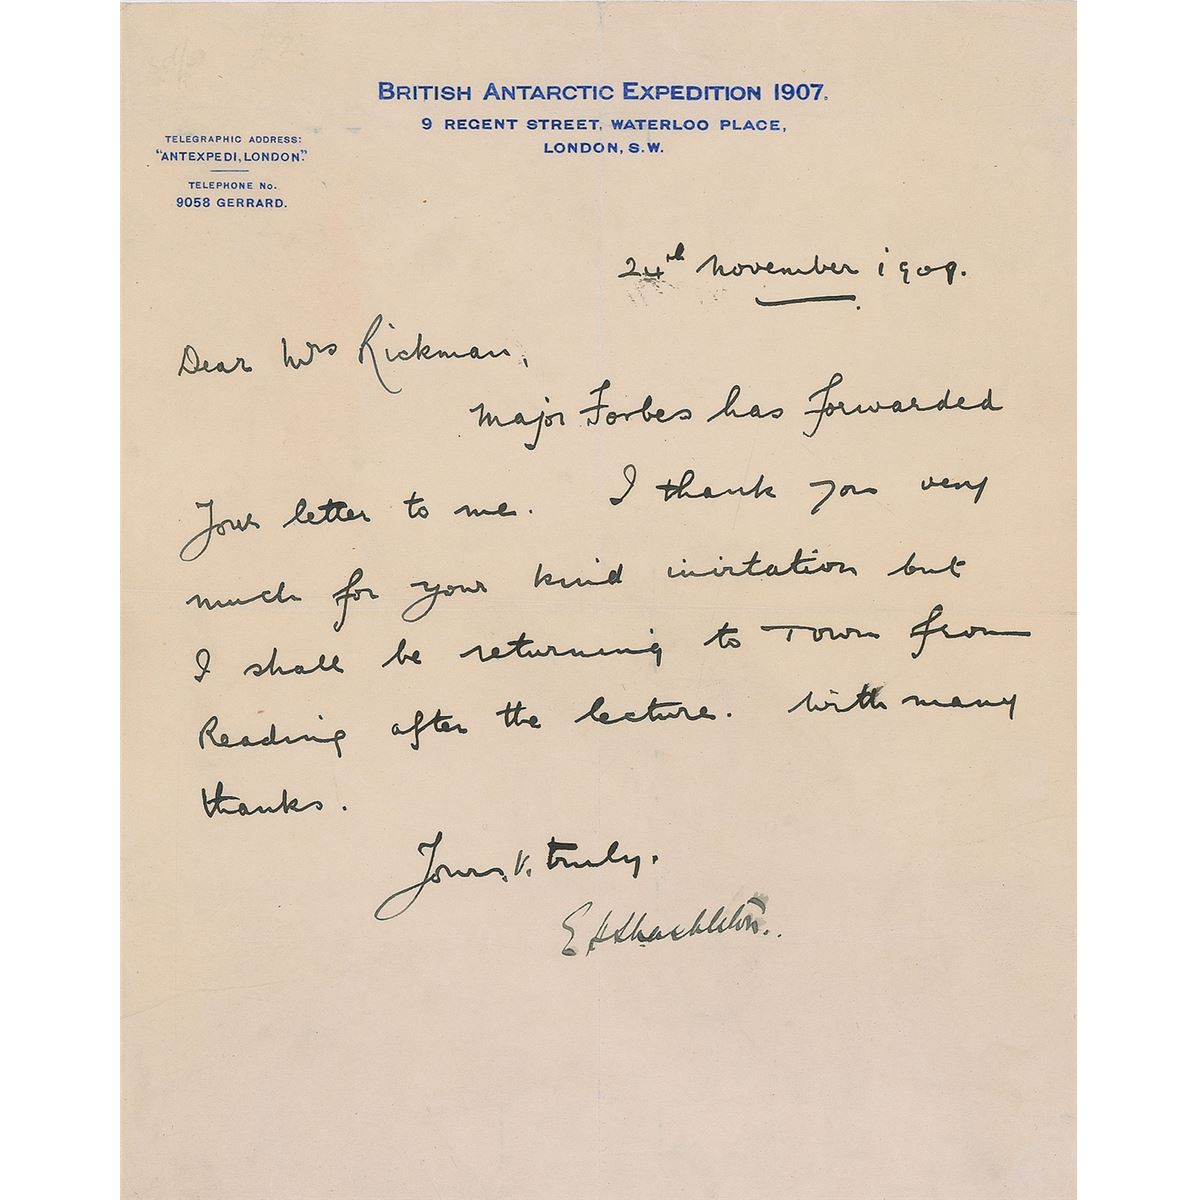 BRITISH ANTARCTIC EXPEDITION 1907.
9 REGENT STREET, WATERLOO PLACE,
LONDON, S.W.
TELEGRAPHIC ADDRESS:
"ANTEXPEDI, LONDON."
TELEPHONE No.
9058 GERRARD.
24th November 1909.
Dear Mrs Rickman,
Major Forbes has forwarded
your letter to me. I thank you very
much for your kind invitation but
I shall be returning to Town from
Reading after the lecture. With many
thanks.
Yours v. truly.
E H Shackleton.